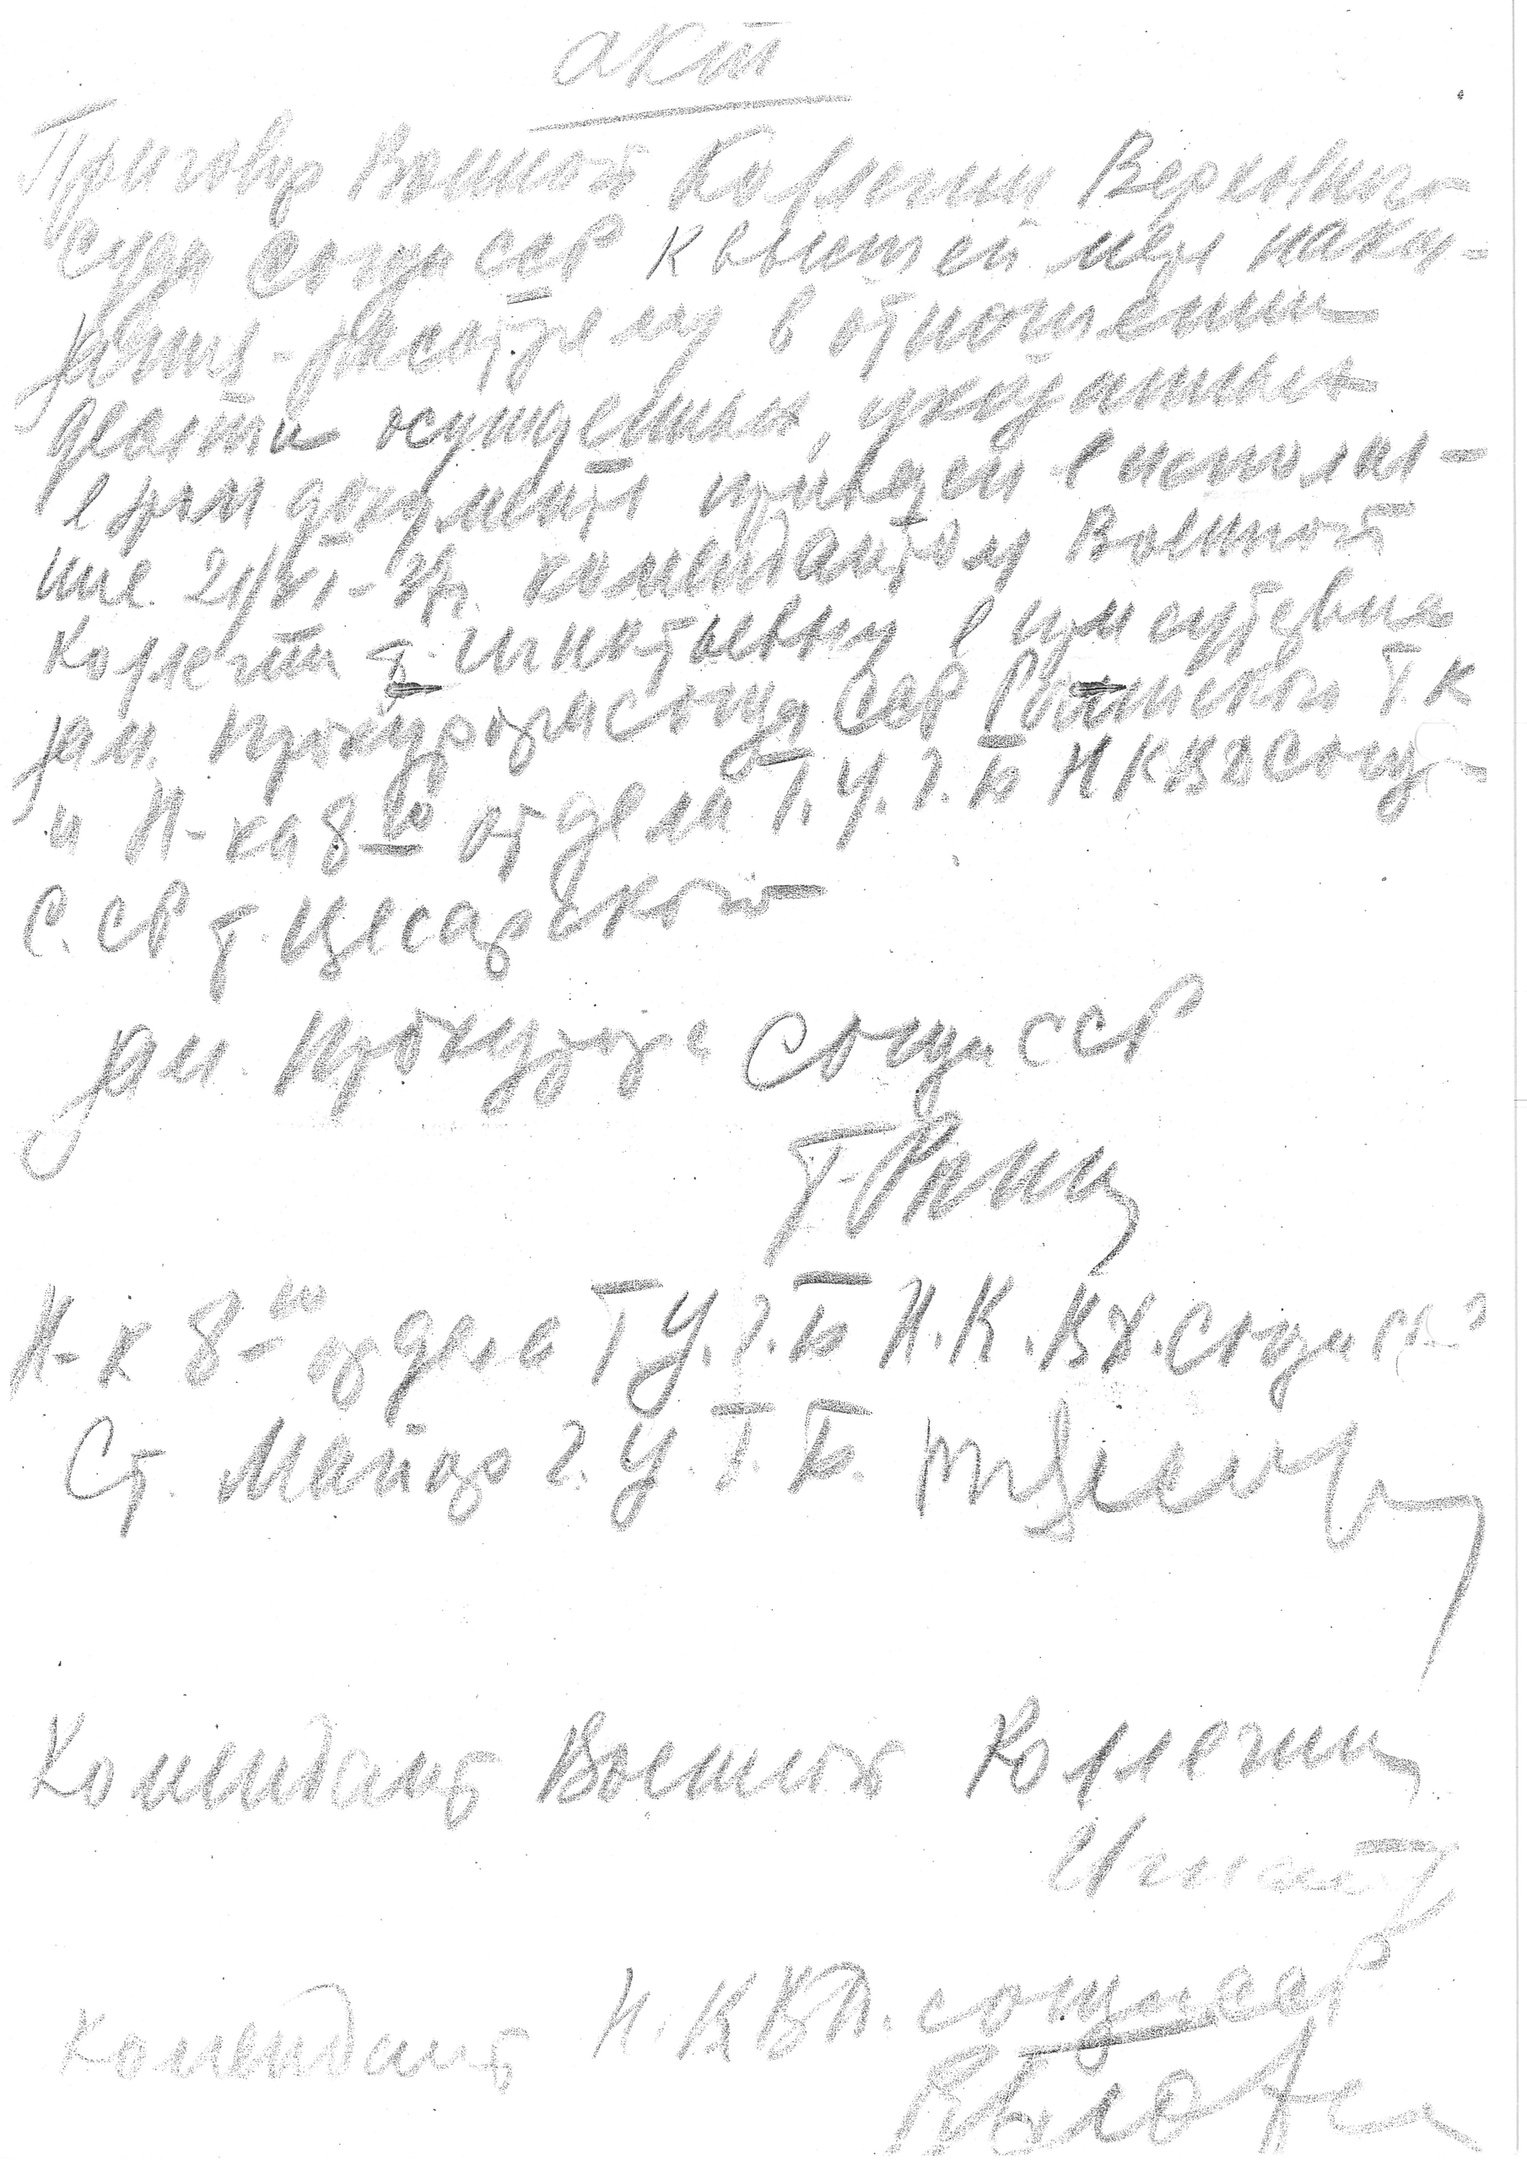 Акт
Приговор Военной Коллегии Верховного
суда Союза ССР к высшей мере нака-
зания - расстрелу в отношении
десяти осужденных, указанных
в этом документе приведен в исполне-
ние 21/VI-37г. комендантом Военной
Коллегии т. Игнатьевым в присутствии
зам. прокурора Союза ССР Рогинского Г.К
и Н-ка 8-го отдела Г.У.Г.Б НКВД Союза
С.СР т. Цесарского
Зам. Прокурора Союза ССР
Г. Рогин
Н-к 8-го отдела ГУ.Г.Б Н.К.В.Д. Союза ССР
Ст. Майор Г.У.Г.Б. Цесар
Комендант Военной Коллегии
Игнат
Комендант Н.КВД. Союза ССР
Блохин